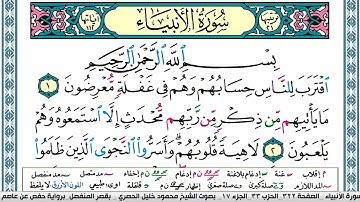 سُورَةُ الْأَنْبِيَاءِ
بِسْمِ اللَّهِ الرَّحْمَٰنِ الرَّحِيمِ
اقْتَرَبَ لِلنَّاسِ حِسَابُهُمْ وَهُمْ فِي غَفْلَةٍ مُعْرِضُونَ ١
مَا يَأْتِيهِمْ مِنْ ذِكْرٍ مِنْ رَبِّهِمْ مُحْدَثٍ إِلَّا اسْتَمَعُوهُ وَهُمْ
يَلْعَبُونَ ٢ لَاهِيَةً قُلُوبُهُمْ وَأَسَرُّوا النَّجْوَى الَّذِينَ ظَلَمُوا
سورة الأنبياء الصفحة ٣٢٢ الحزب ٣٣ الجزء ١٧ بصوت الشيخ محمود خليل الحصري بقصر المنفصل برواية حفص عن عاصم